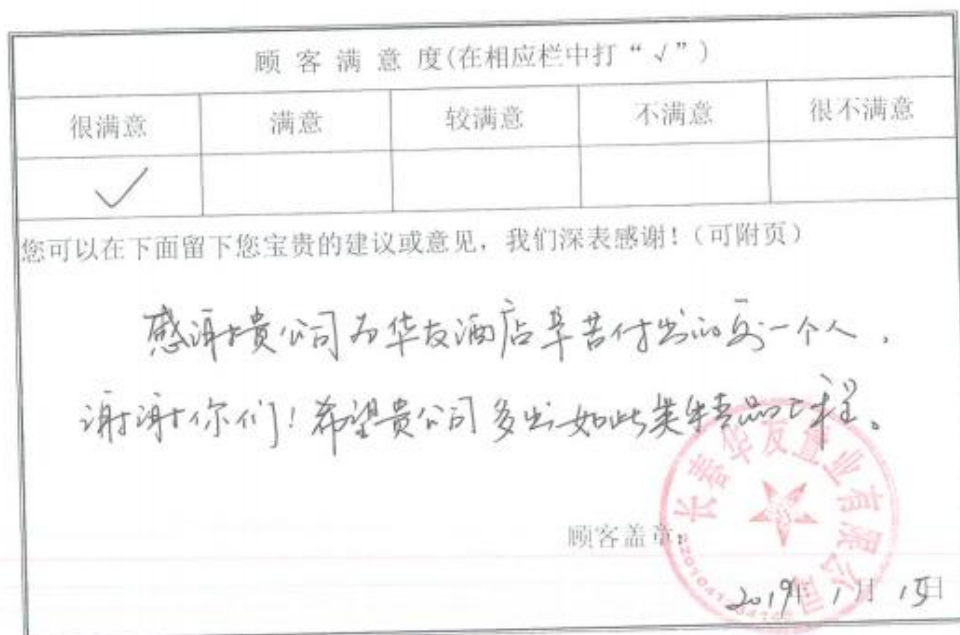 顾 客 满 意 度(在相应栏中打“√”)
很满意 满意 较满意 不满意 很不满意
√
您可以在下面留下您宝贵的建议或意见，我们深表感谢！(可附页)
感谢贵公司为华友酒店辛苦付出的每一个人，
谢谢你们！希望贵公司多出如此类精品工程。
长春华友置业有限公司
顾客盖章：
2019年 1月 15日